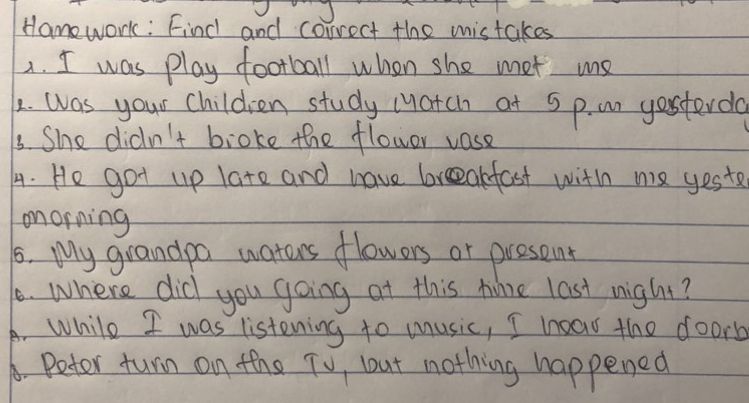 Homework: Find and correct the mistakes
1. I was play football when she met me
2. Was your children study Match at 5 p.m yesterda
3. She didn't broke the flower vase
4. He got up late and have breakfast with me yeste
morning
5. My grandpa waters flowers at present
6. Where did you going at this time last night?
While I was listening to music, I hear the doorb
8. Peter turn on the TV, but nothing happened